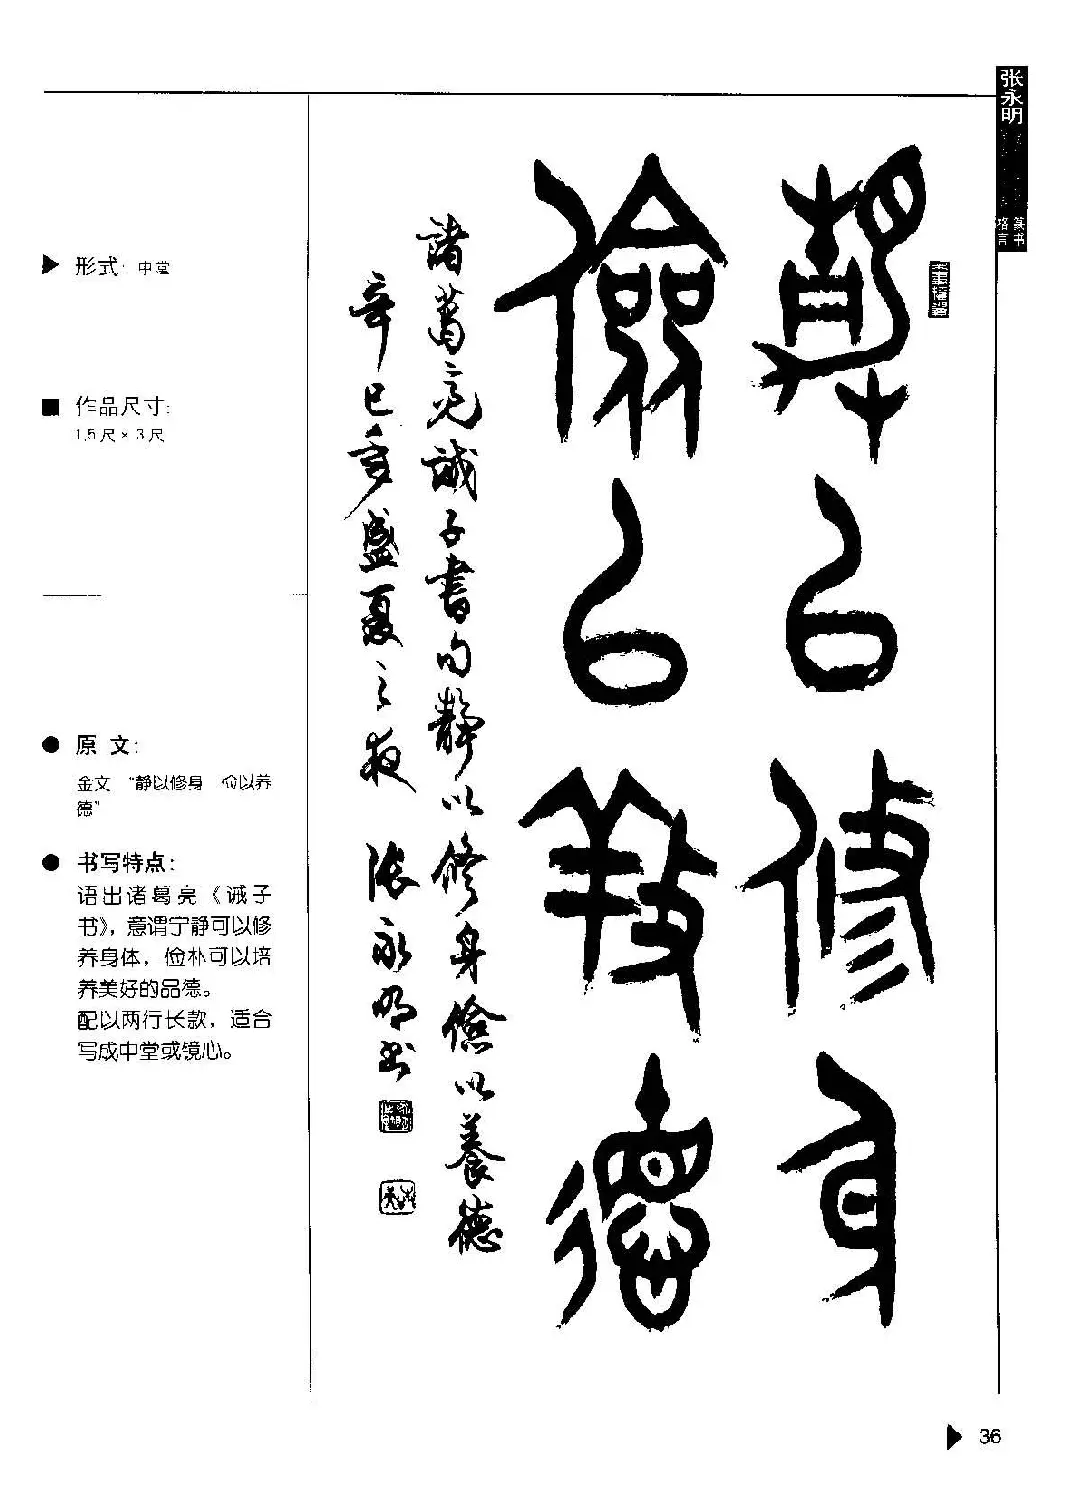 张永明
篆书
格言
形式：中堂
作品尺寸：
1.5尺×3尺
原文：
金文 “静以修身 俭以养
德”
书写特点：
语出诸葛亮《诫子
书》，意谓宁静可以修
养身体，俭朴可以培
养美好的品德。
配以两行长款，适合
写成中堂或镜心。
静以修身
儉以養德
諸葛亮誡子書句靜以修身儉以養德
辛巳年盛夏之夜 张永明书
36